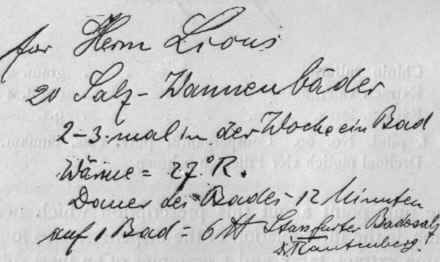 for Herrn Lions
20 Salz-Wannenbäder
2-3 mal in der Woche ein Bad
Wärme = 27.°R.
Dauer des Bades 12 Minuten
auf 1 Bad = 6 ℔ Stassfurter Badesalz
Dr. Rautenberg